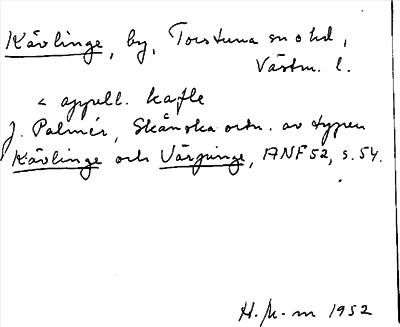 Kävlinge, by, Torstuna sn o hd,
Västm. l.
< appell. kafle
J. Palmér, Skånska ortn. av typen
Kävlinge och Värpinge, ANF 52, s. 54.
H. M-m 1952